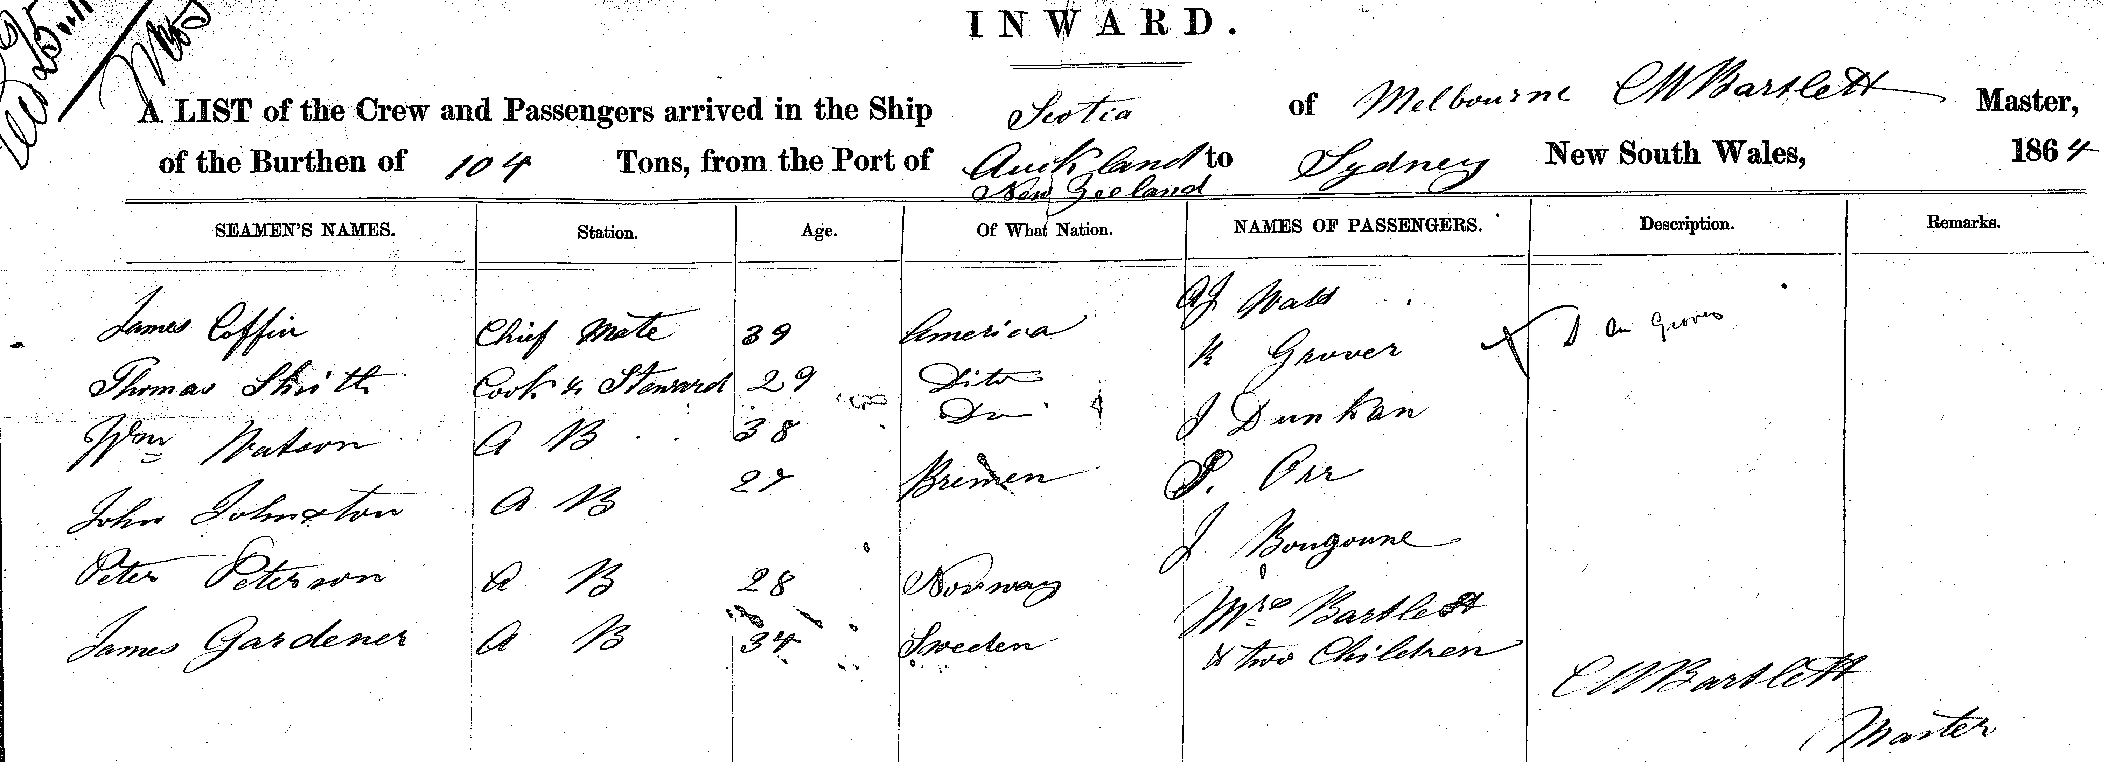 INWARD.
A LIST of the Crew and Passengers arrived in the Ship Scotia of Melbourne CW Bartlett Master,
of the Burthen of 104 Tons, from the Port of Auckland to Sydney New South Wales, 1864
New Zeeland
SEAMEN'S NAMES. Station. Age. Of What Nation. NAMES OF PASSENGERS. Description. Remarks.
James Coffin Chief Mate 39 America
Thomas Smith Cook & Steward 29 Dito
Wm Watson A B 38 Do
John Johnston A B 27 Bremen
Peter Peterson A B 28 Norway
James Gardener A B 34 Sweden
Watt
K Grover
J Dunkan
P. Orr
J Bougoune
Mrs Bartlett
& two Children
CW Bartlett
Master